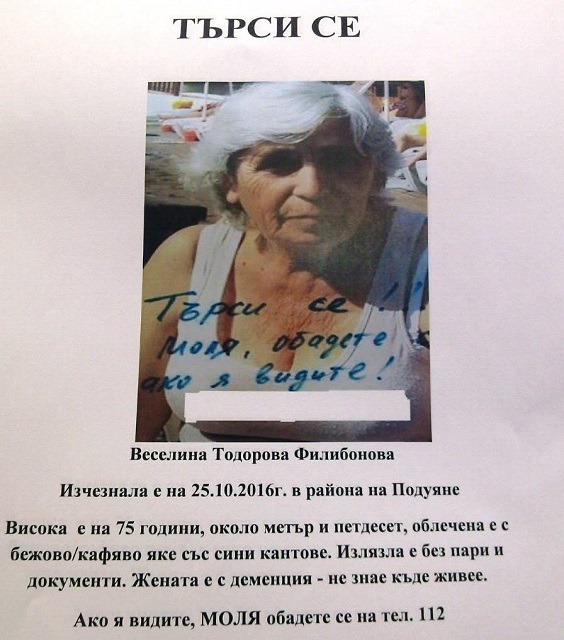 ТЪРСИ СЕ
Търси се!!
Моля, обадете
ако я видите!
Веселина Тодорова Филибонова
Изчезнала е на 25.10.2016г. в района на Подуяне
Висока е на 75 години, около метър и петдесет, облечена е с
бежово/кафяво яке със сини кантове. Излязла е без пари и
документи. Жената е с деменция - не знае къде живее.
Ако я видите, МОЛЯ обадете се на тел. 112